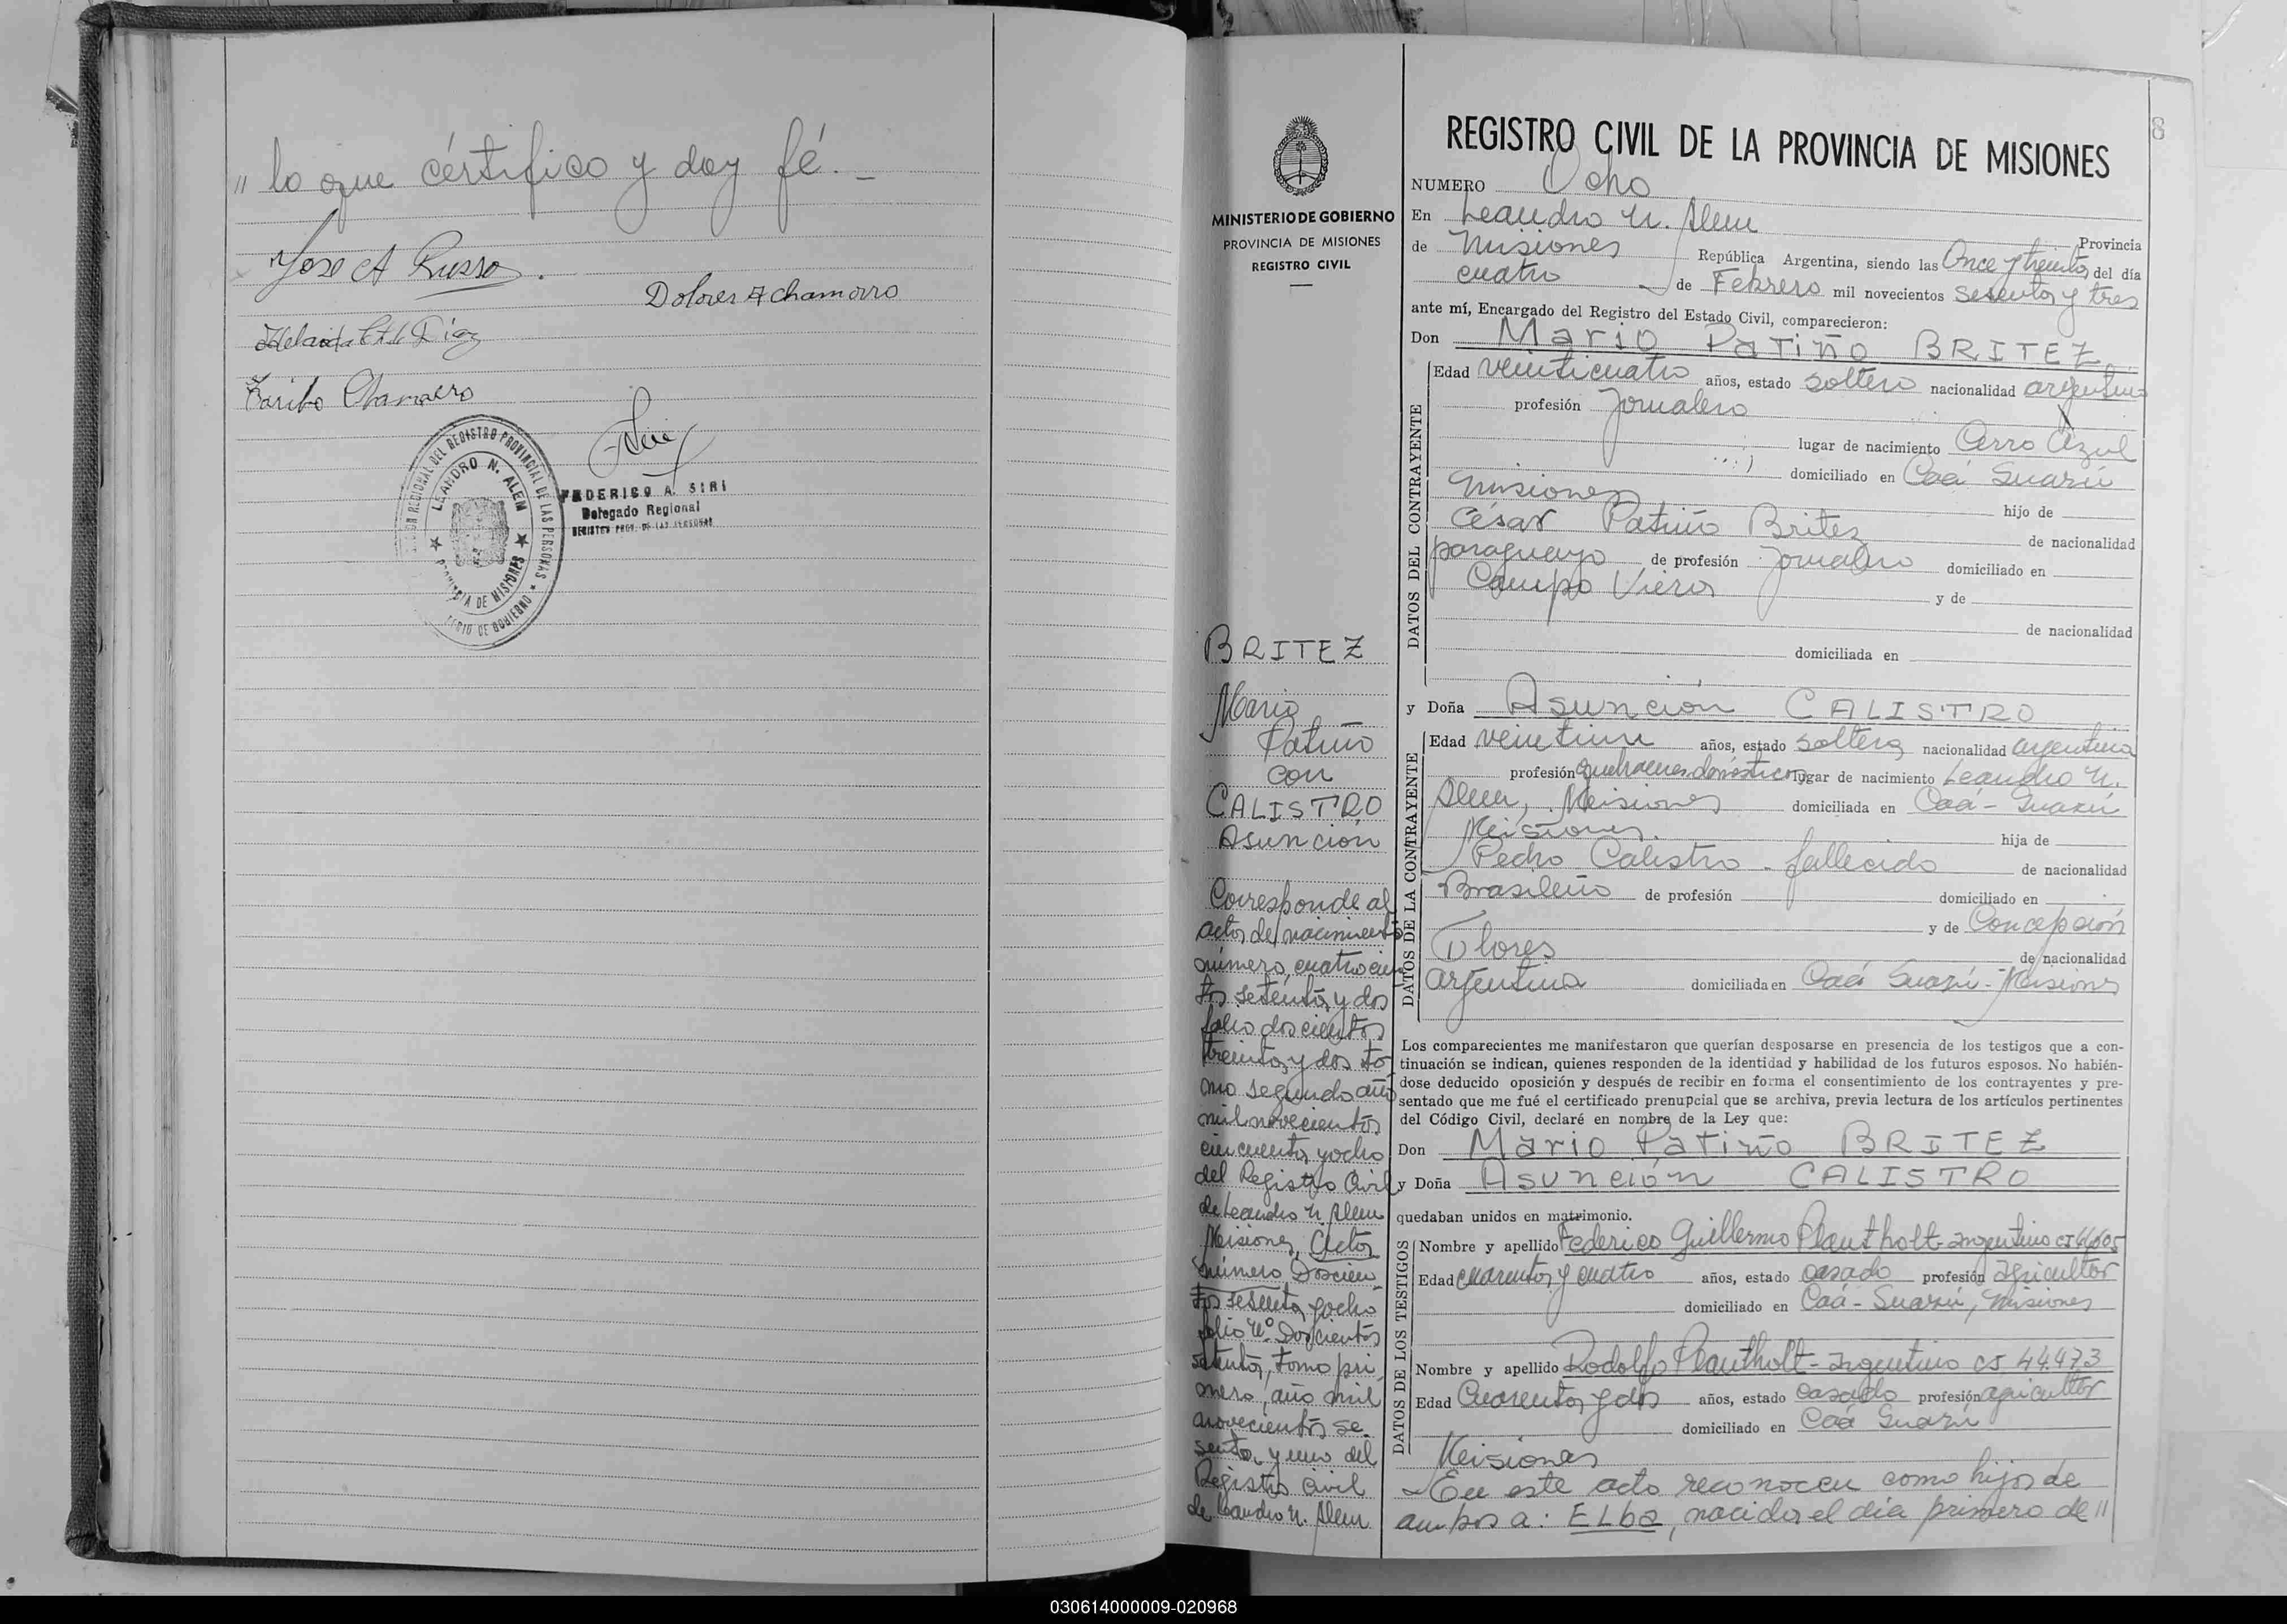 " lo que cértifico y doy fé. _
Jose A Russo.
Dolores A Chamorro
Adelaida Diaz
Chamorro
REGISTRO PROVINCIAL DE LAS PERSONAS
LEANDRO N. ALEM
PROVINCIA DE MISIONES
DE GOBIERNO
FEDERICO A. SIRI
Delegado Regional
REGISTRO PROV. DE LAS PERSONAS
8
MINISTERIO DE GOBIERNO
PROVINCIA DE MISIONES
REGISTRO CIVIL
BRITEZ
Mario
Patiño
con
CALISTRO
Asunción
Corresponde al
acta de nacimiento
número cuatrocien
tos setenta y dos
folio doscientos
treinta y dos to
mo segundo año
mil novecientos
cincuenta y ocho
del Registro Civil
de Leandro N. Alem
Misiones, Acta
número Doscien
tos sesenta y ocho
folio Nº Doscientos
setenta, tomo pri
mero, año mil
novecientos se
senta y uno del
Registro Civil
de Leandro N. Alem
REGISTRO CIVIL DE LA PROVINCIA DE MISIONES
NUMERO Ocho
En Leandro N. Alem Provincia
de Misiones República Argentina, siendo las Once y treinta del día
cuatro de Febrero mil novecientos sesenta y tres
ante mí, Encargado del Registro del Estado Civil, comparecieron:
Don Mario Patiño BRITEZ
DATOS DEL CONTRAYENTE
Edad veinticuatro años, estado soltero nacionalidad argentino
profesión Jornalero
lugar de nacimiento Cerro Azul
domiciliado en Caá Guazú
Misiones hijo de
César Patiño Britez de nacionalidad
paraguayo de profesión Jornalero domiciliado en
Campo Viera y de
de nacionalidad
domiciliada en
y Doña Asunción CALISTRO
DATOS DE LA CONTRAYENTE
Edad veintiun años, estado soltera nacionalidad argentina
profesión quehaceres domésticos lugar de nacimiento Leandro N.
Alem, Misiones domiciliada en Caá-Guazú
Misiones. hija de
Pedro Calistro - fallecido de nacionalidad
Brasileño de profesión domiciliado en
y de Concepción
Flores de nacionalidad
argentina domiciliada en Caá Guazú - Misiones
Los comparecientes me manifestaron que querían desposarse en presencia de los testigos que a con-
tinuación se indican, quienes responden de la identidad y habilidad de los futuros esposos. No habién-
dose deducido oposición y después de recibir en forma el consentimiento de los contrayentes y pre-
sentado que me fué el certificado prenupcial que se archiva, previa lectura de los artículos pertinentes
del Código Civil, declaré en nombre de la Ley que:
Don Mario Patiño BRITEZ
y Doña Asunción CALISTRO
quedaban unidos en matrimonio.
DATOS DE LOS TESTIGOS
Nombre y apellido Federico Guillermo Plautholt - argentino
Edad cuarenta y cuatro años, estado casado profesión agricultor
domiciliado en Caá-Guazú, Misiones
Nombre y apellido Rodolfo Plautholt - argentino CI 44.473
Edad Cuarenta y dos años, estado casado profesión agricultor
domiciliado en Caá Guazú
Misiones
- En este acto reconocen como hijos de
ambos a: ELba, nacida el día primero de "
030614000009-020968